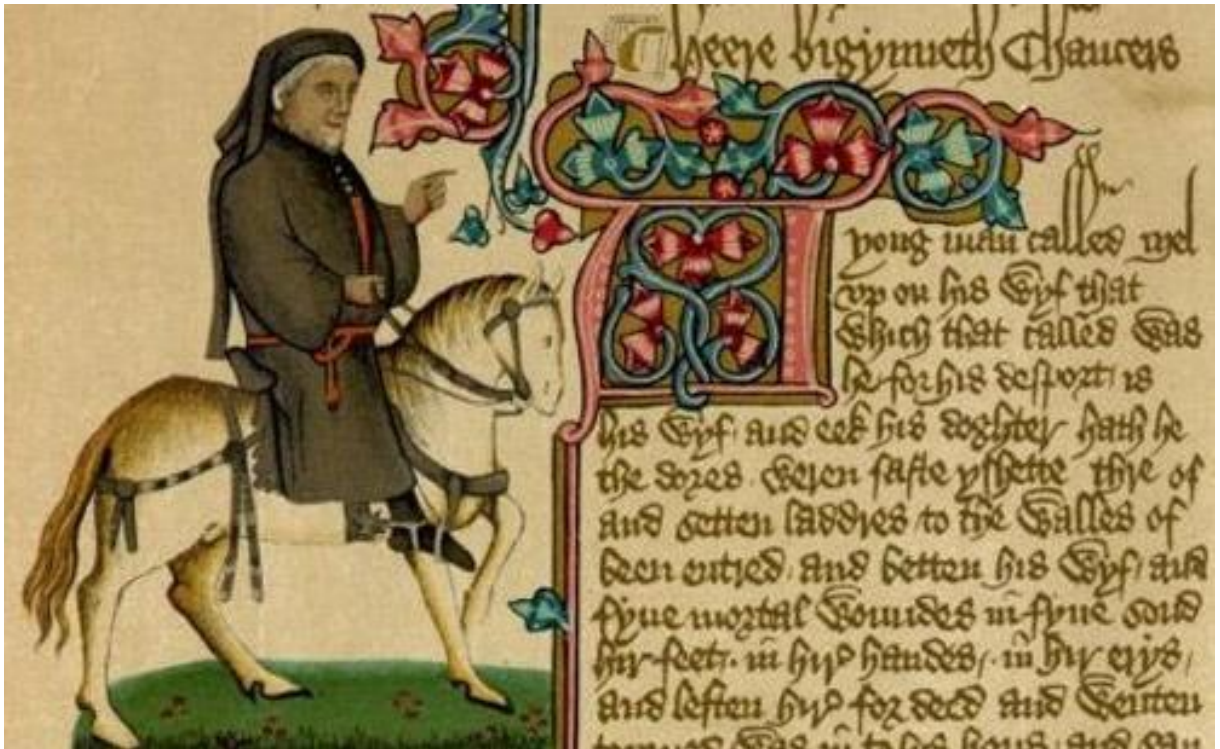 heere bigynneth Chaucers
yong man called mel
vp on his wyf that
which that called was
he for his desport is
his wyf and eek his doghter hath he
the dores weren faste yshette thre of
and setten laddres to the walles of
been entred and betten his wyf and
fyue mortal woundes in fyue sond
hir feet in hir handes in hir erys
and leften hir for deed and wenten